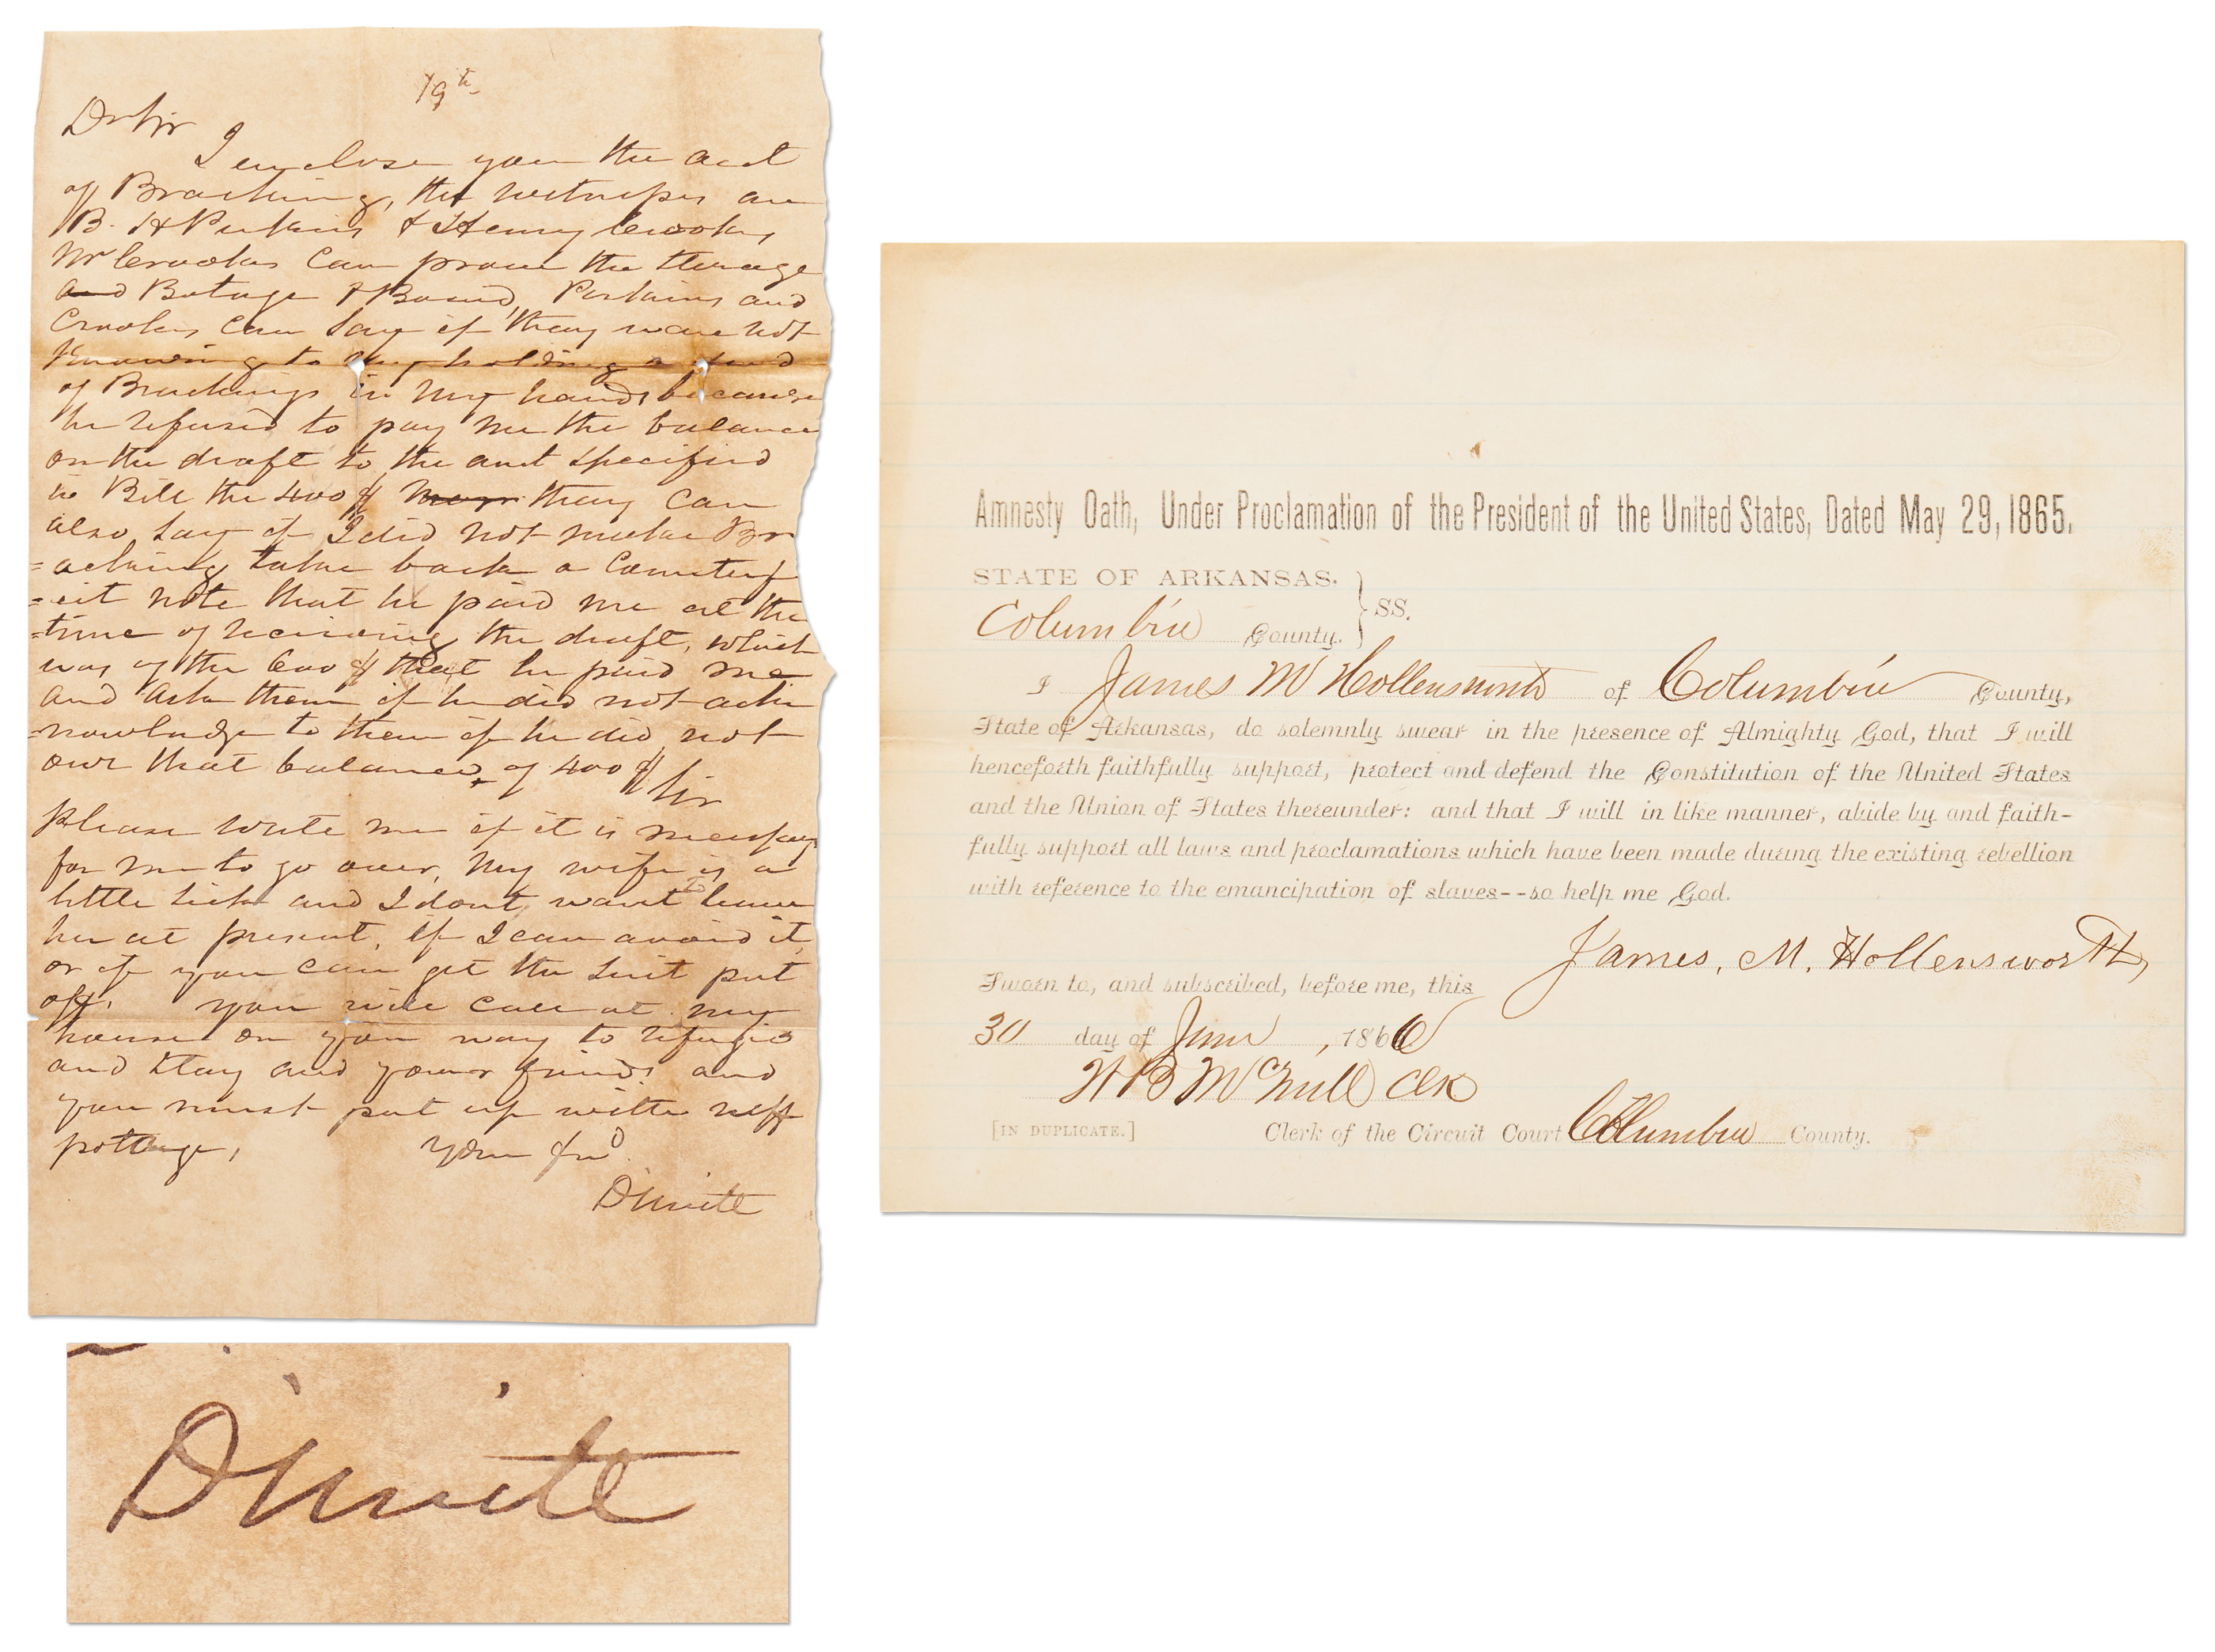 19th
Dr Sir
I enclose you the act
of Bracking, the witnesses are
B. H Perkins & Henry Crooks,
Mr Crooks can prove the
and Botage & Board, Perkins and
Crooks can say if thay ware not
Knowing to my holding a
of Brackings in my hands because
he refused to pay me the balance
on the draft to the amt specified
in Bill the 400 $ thay can
also say if I did not make Br
=acking take back a Counterf
=eit note that he paid me at the
=time of receiving the draft, which
was of the 600 $ that he paid me
and ask them if he did not ack
=nowledge to them if he did not
owe that balance, of 400 $ Sir
please write me if it is necessary
for me to go over, My wife is a
little sick and I dont want to leave
her at present, if I can avoid it,
or if you can get the suit put
off, you will call at my
house on you way to refugio
and stay and your friends and
you must put up with
pottage,
your frnd
D Miitt
Amnesty Oath, Under Proclamation of the President of the United States, Dated May 29, 1865.
STATE OF ARKANSAS. } SS.
Columbia County.
I James M Hollensworth of Columbia County,
State of Arkansas, do solemnly swear in the presence of Almighty God, that I will
henceforth faithfully support, protect and defend the Constitution of the United States
and the Union of States thereunder: and that I will in like manner, abide by and faith-
fully support all laws and proclamations which have been made during the existing rebellion
with reference to the emancipation of slaves--so help me God.
James. M. Hollensworth,
Sworn to, and subscribed, before me, this
30 day of June, 1866
Clk
[IN DUPLICATE.] Clerk of the Circuit Court Columbia County.